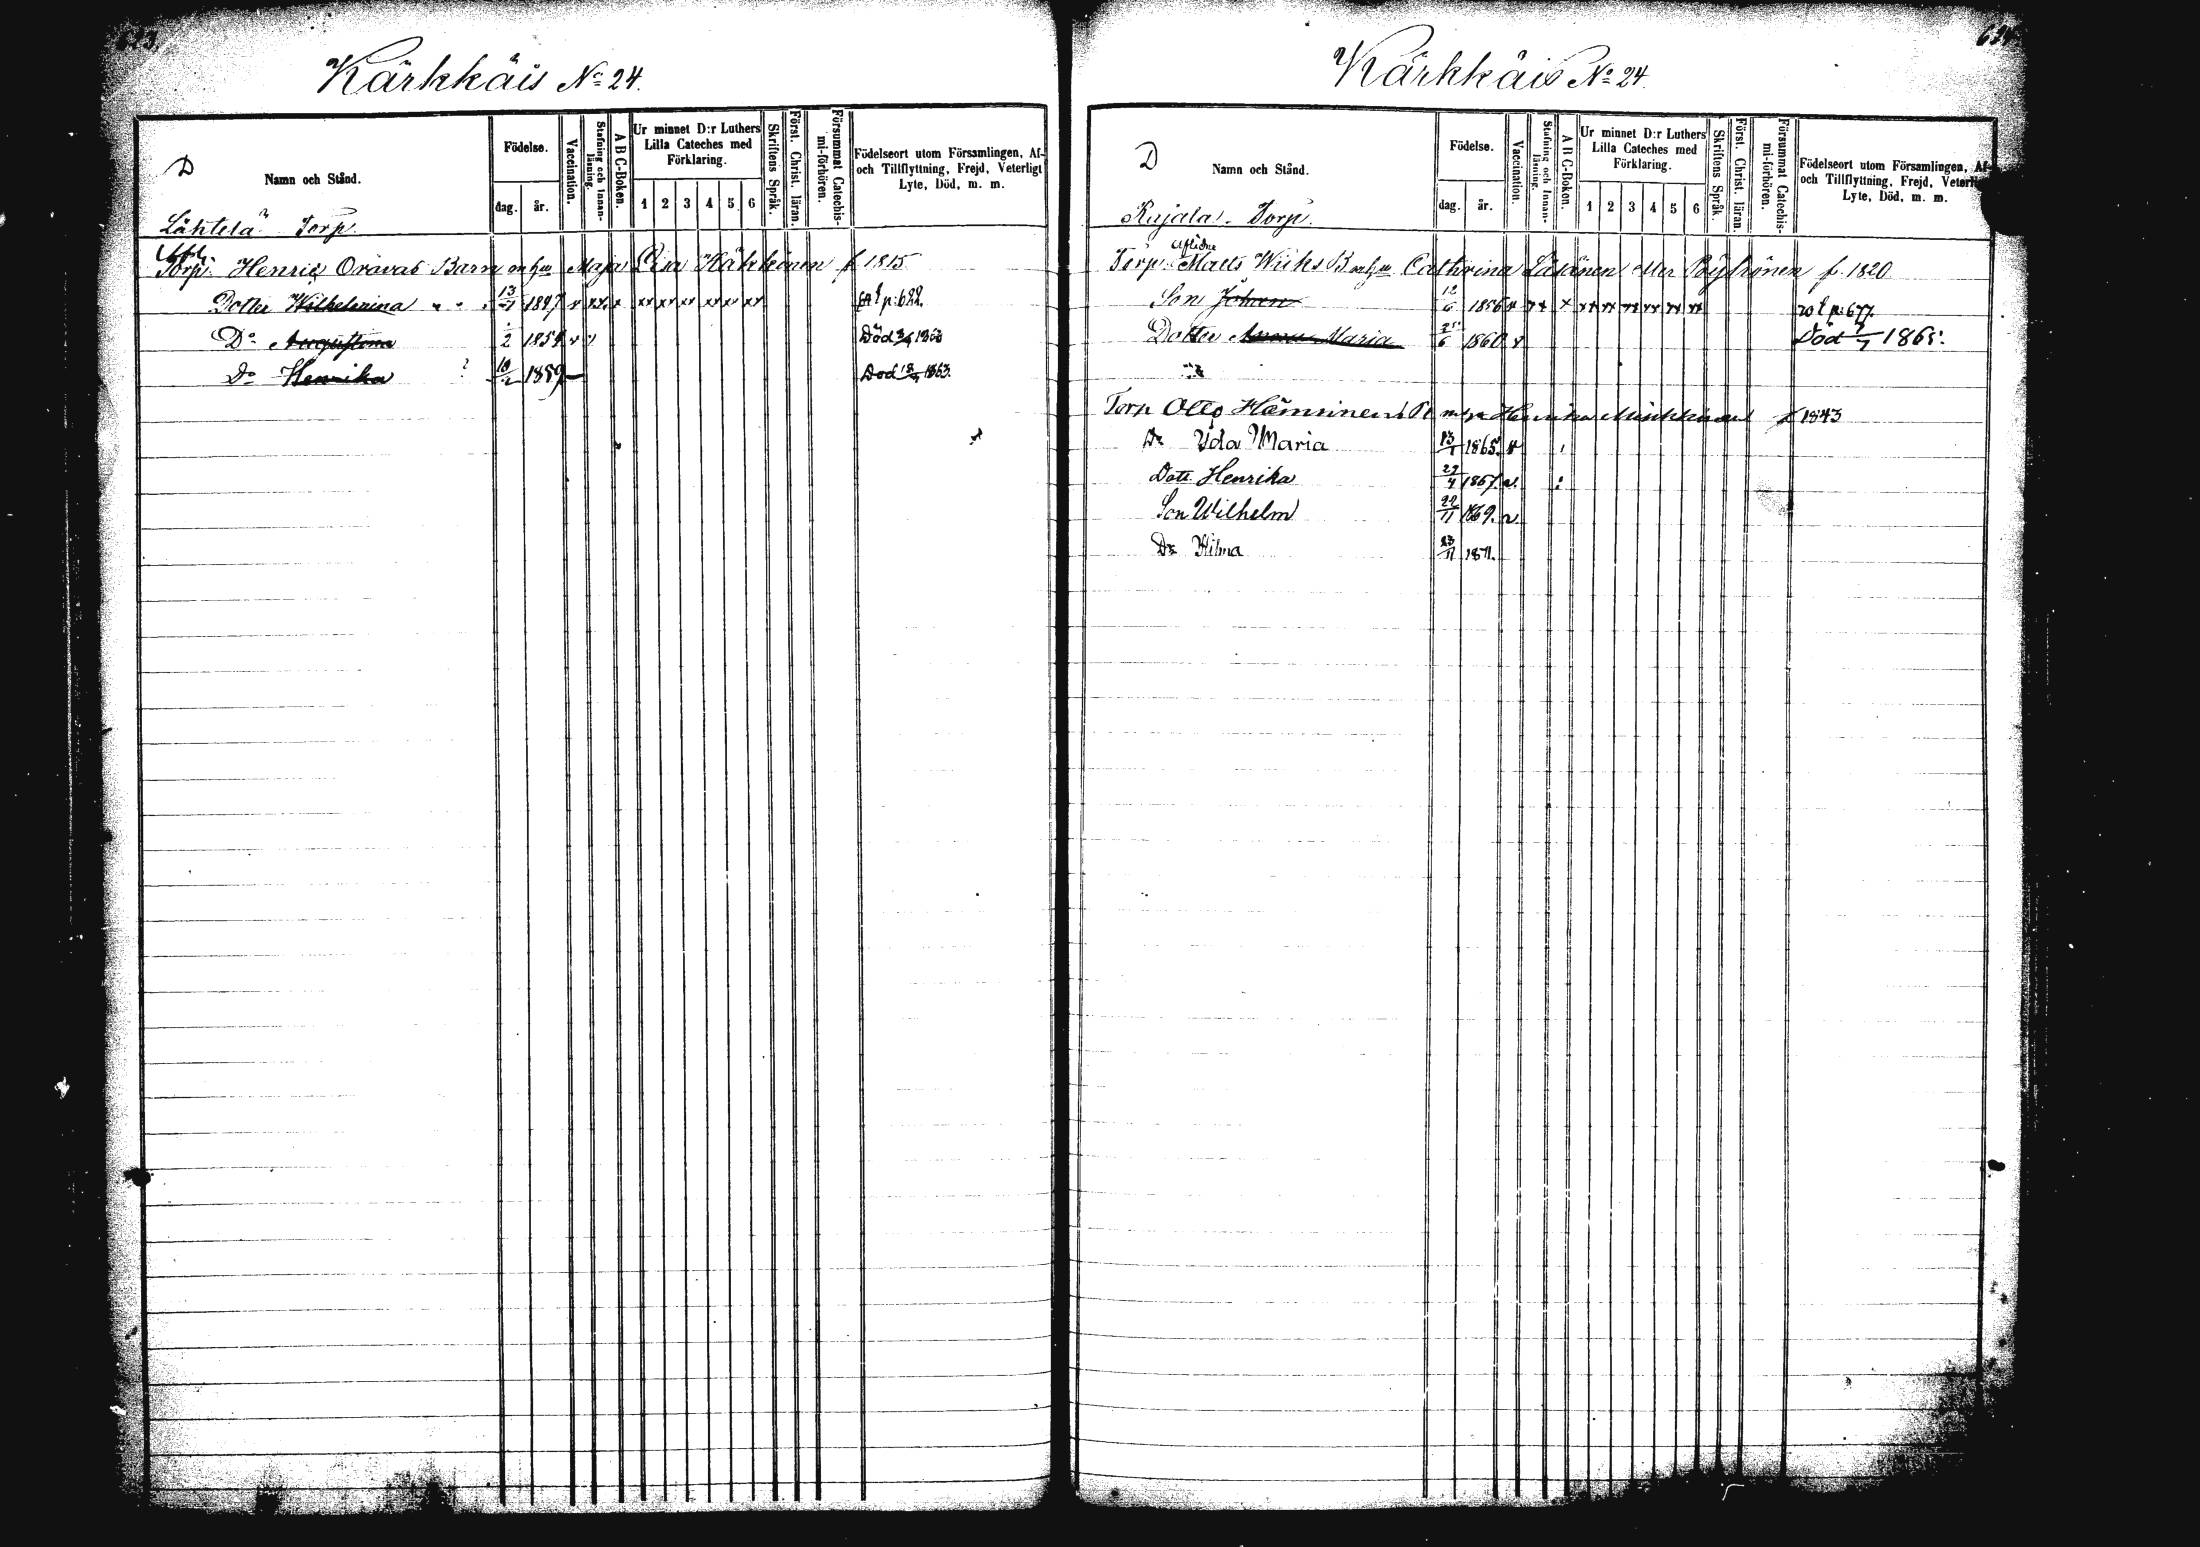 623.
Kärkkäis No 24.
D
Namn och Stånd.
Födelse.
dag.
år.
Vaccination.
Stafning och Innan-läsning.
A B C-Boken.
Ur minnet D:r Luthers Lilla Cateches med Förklaring.
1 2 3 4 5 6
Skriftens Språk.
Först. Christ. läran.
Försummat Catechis-mi-förhören.
Födelseort utom Församlingen, Af- och Tillflyttning, Frejd, Veterligt Lyte, Död, m. m.
Lähtelä Torp.
Torp. Henric Oravas Barn m hu Maja Lisa Häkkönen f 1815
Dotter Wilhelmina 13 1847 p: 622.
Do Augustina 2 1854 Död
Do Henrika ? 10/2 1859 Död 1863.
624
Kärkkäis No 24.
D
Namn och Stånd.
Födelse.
dag.
år.
Vaccination.
Stafning och Innan-läsning.
A B C-Boken.
Ur minnet D:r Luthers Lilla Cateches med Förklaring.
1 2 3 4 5 6
Skriftens Språk.
Först. Christ. läran.
Försummat Catechis-mi-förhören.
Födelseort utom Församlingen, Af- och Tillflyttning, Frejd, Veterligt Lyte, Död, m. m.
Rajala Torp.
Aflidne
Torp. Matts Wicks B m hu Cathrina Läsänen eller Pöyhönen f. 1820
Son Johan 12/6 1856 p: 677.
Dotter Anna Maria 25/6 1860 Död 1865.
Torp Otto Hämminen m hu Henrika f 1843
Dr Ida Maria 13 1865
Dott Henrika 27/4 1867
Son Wilhelm 22/11 1869.
Dr Hilma 23/11 1871.